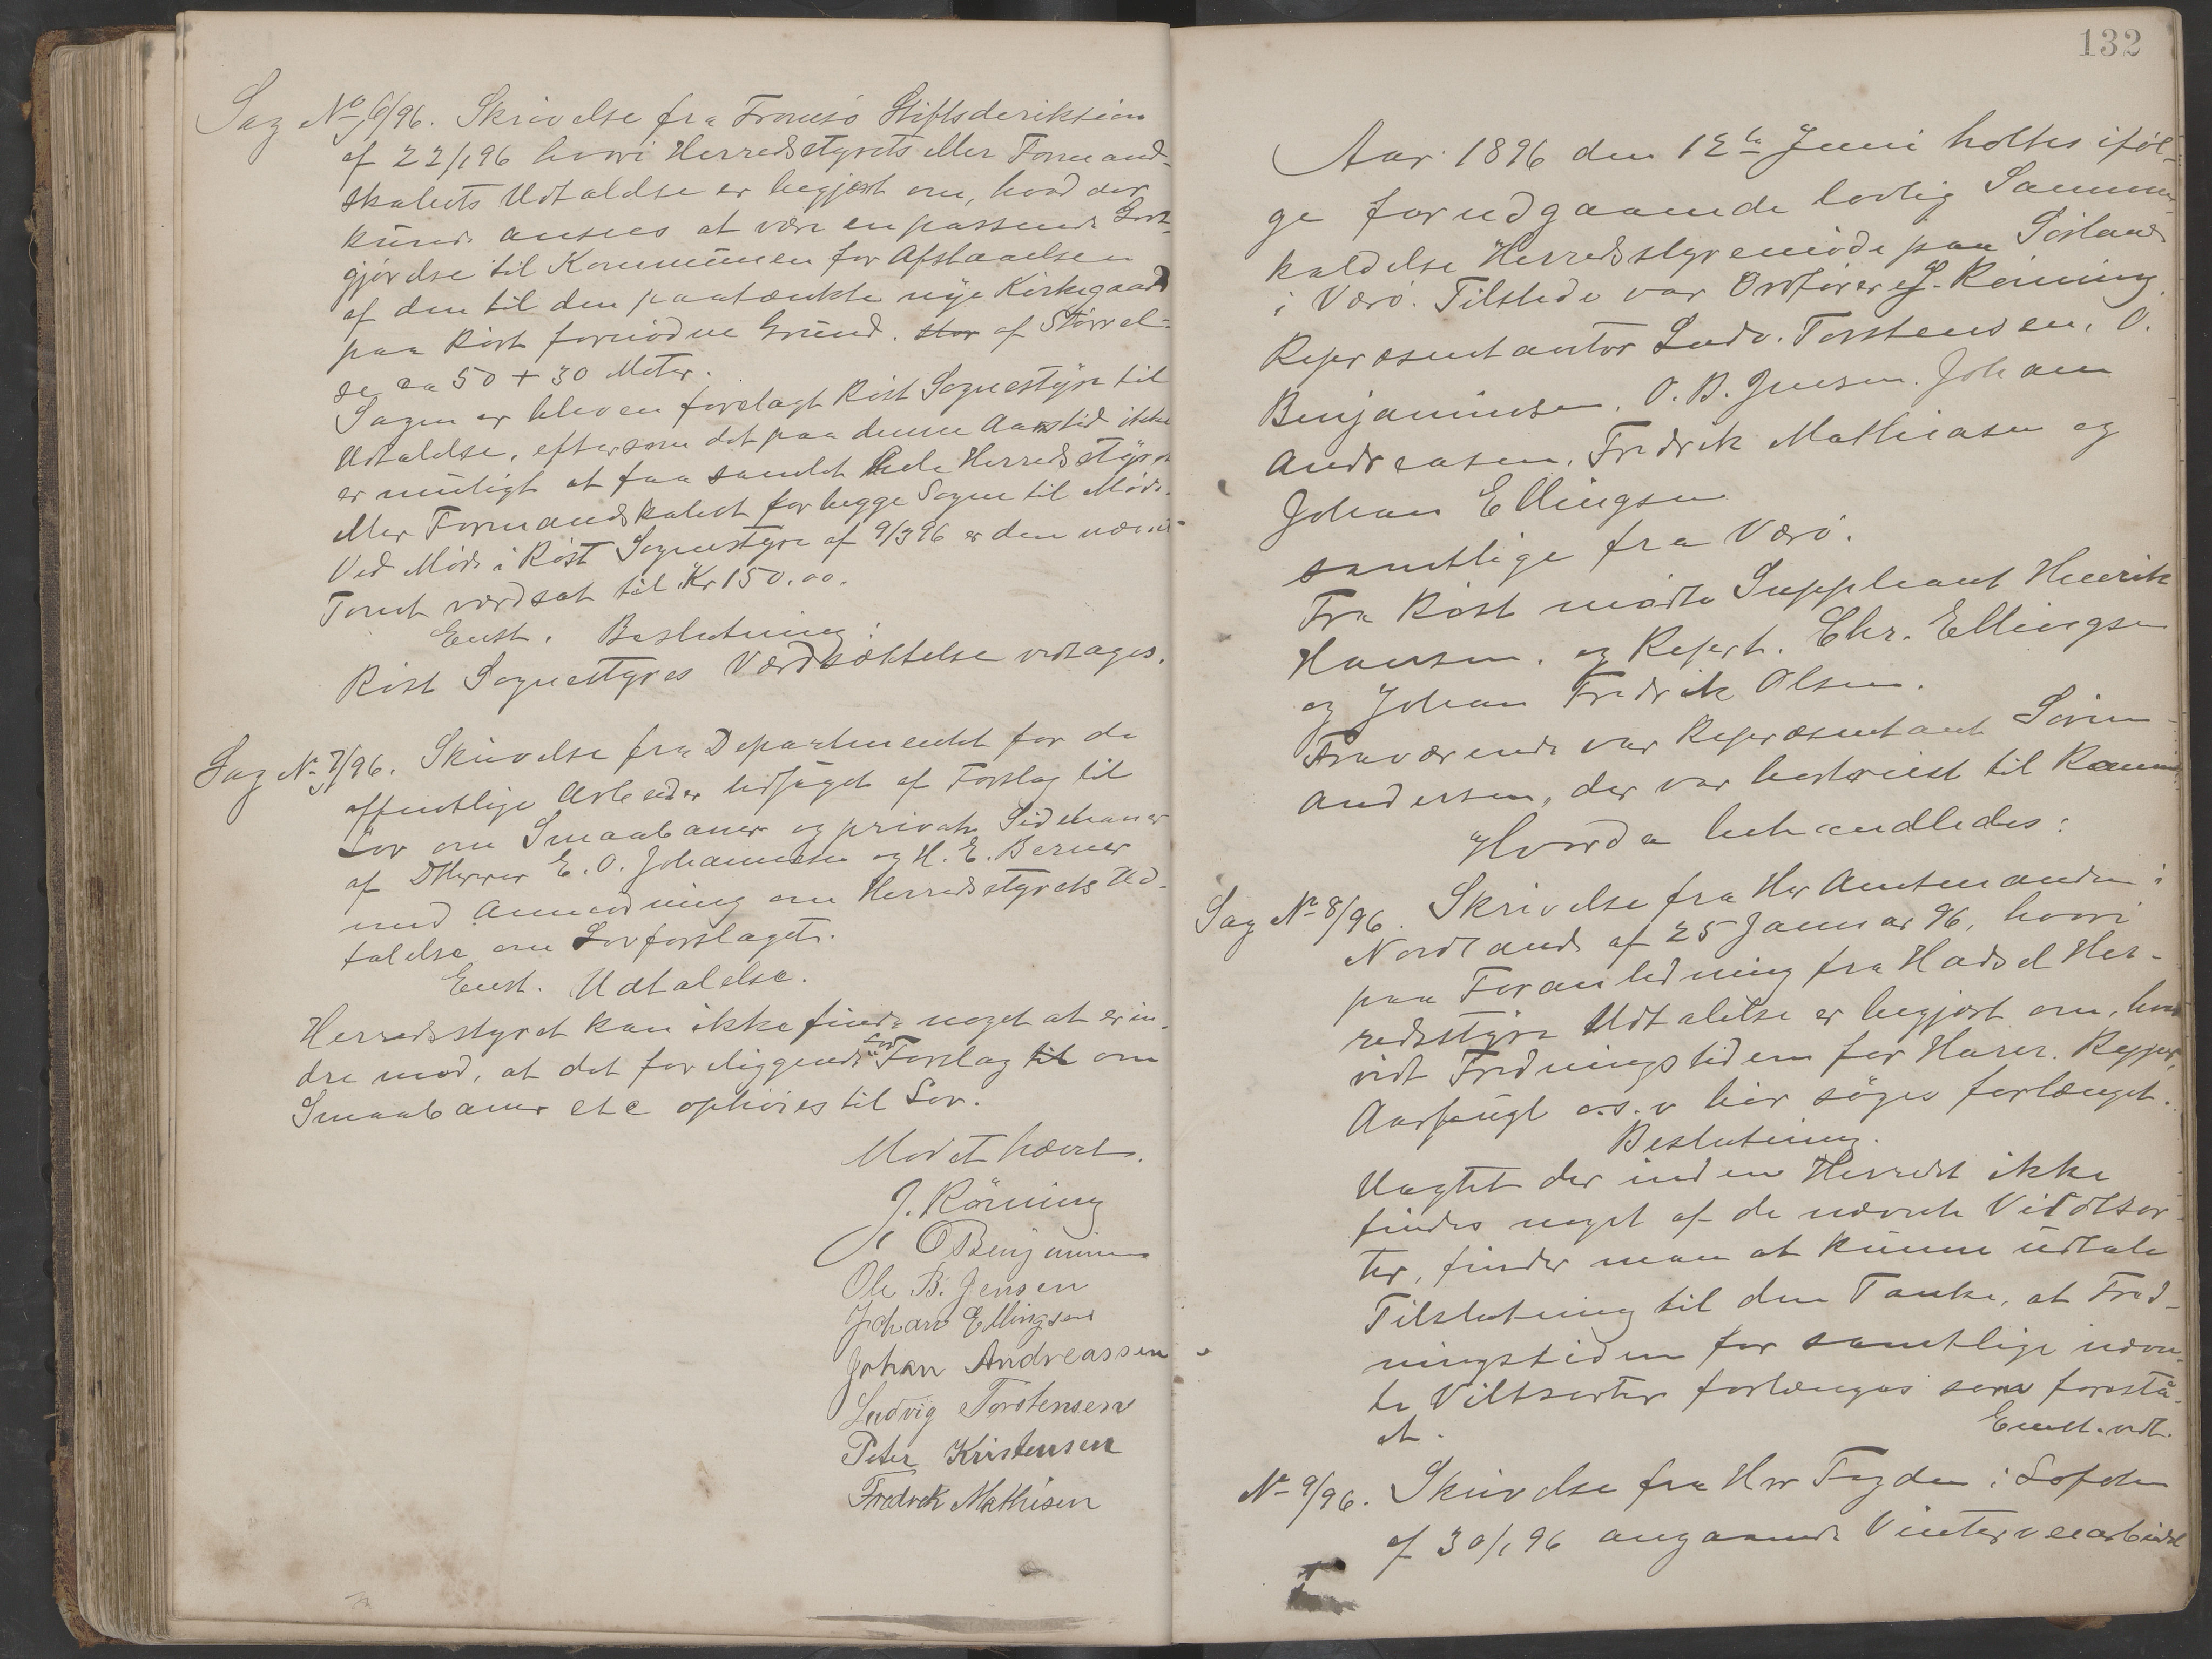 Sag No 6/96. Skrivelse fra Tromsö Stiftsderiktion
af 22/1 96 hvori Herredsstyrets eller Formand-
skabets Udtalelse er begjært om, hvad der
kunde ansees at være en passende Godt-
gjörelse til Kommunen for Afstaaelsen
af den til den paatænkte nye Kirkegaard
paa Röst fornödne Grund. stor af Störrel-
se ca 50 + 30 Meter.
Sagen er bleven forelagt Röst Sognestyre til
Udtalelse, eftersom det paa denne Aarstid ikke
er muligt at faa samlet hele Herredsstyret
eller Formandskabet for begge Sogne til Möde.
Ved Möde i Röst Sognestyre af 9/3 96 er den nævnte
Tomt værdsat til Kr 150.00.
Enst. Beslutning:
Röst Sognestyres Værdsættelse vedtages.
Sag No 7/96. Skrivelse fra Departementet for de
offentlige Arbeider ledsaget af Forslag til
Lov om Smaabaner og private Sidebaner
af DHerrer E. O. Johannesen og H. E. Berner
med Anmodning om Herredsstyrets Ud-
talelse om Lovforslaget.
Enst. Udtalelse.
Herredsstyret kan ikke finde noget at erin-
dre mod, at det foreliggende Lov Forslag til om
Smaabaner etc ophöies til Lov.
Mödet hævet.
J. Röning
O Benjamins
Ole B. Jensen
Johan Ellingsen
Johan Andreassen
Ludvig Torstensen
Peter Kristensen
Fredrek Mathisen
132
Aar 1896 den 12te Juni holtes iföl-
ge forudgaaende lovlig Sammen-
kaldelse Herredsstyremöde paa Sörland
i Værö. Tilstede var Ordförer J. Röining.
Repræsentanter Ludv. Torstensen, O.
Benjaminsen, O. B. Jensen. Johan
Andreasen, Fredrik Mathiasen og
Johan Ellingsen
samtlige fra Værö.
Fra Röst mödte Suppleant Henrik
Hansen, og Repræt. Chr. Ellingsen
og Johan Fredrik Olsen.
Fraværende var Repræsentant Sören
Andersen, der var bortreist til
Hvorda behandledes:
Sag No 8/96. Skrivelse fra Hr Amtmanden i
Nordlands af 25 Januar 96, hvori
paa Foranledning fra Hadsel Her-
redsstyre Udtalelse er begjært om, hvor
vidt Fredningstiden for Harer. Ryper,
Aarfugl o.s.v bör söges forlænget.
Beslutning.
Uagtet der inden Herredet ikke
findes noget af de nævnte Vildtsor-
ter, finder man at kunne udtale
Tilslutning til den Tanke, at Fred-
ningstiden for samtlige nævn-
te Viltsorter forlænges som foreslå-
et.
Enst. vedt.
No 9/96. Skrivelse fra Hr Fogden i Lofoten
af 30/1 96 angaaende Vinterveiarbeidet